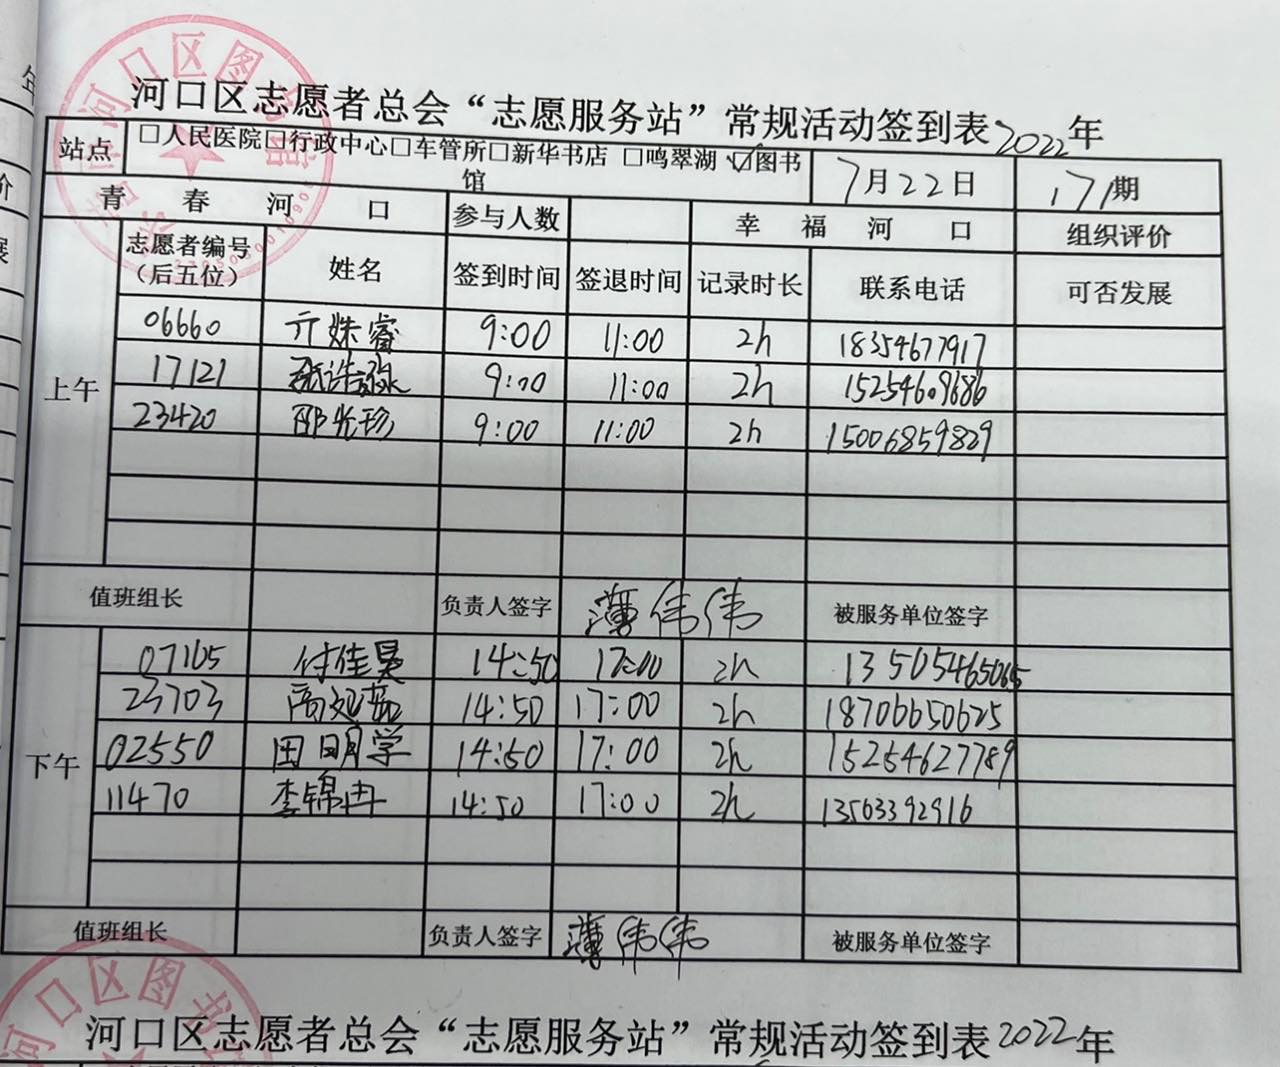 河口区志愿者总会“志愿服务站”常规活动签到表2022年
站点 □人民医院□行政中心□车管所□新华书店 □鸣翠湖 ☑图书馆 7月22日 171期
青春河口 参与人数 幸福河口 组织评价
志愿者编号（后五位） 姓名 签到时间 签退时间 记录时长 联系电话 可否发展
上午
06660 亓姝睿 9:00 11:00 2h 18354677917
17121 9:00 11:00 2h 15254609686
23420 邵光珍 9:00 11:00 2h 15006859829
值班组长 负责人签字 薄伟伟 被服务单位签字
下午
07105 付佳昊 14:50 17:00 2h 13505465065
23703 14:50 17:00 2h 18706650625
02550 田明学 14:50 17:00 2h 15254627789
11470 李锦冉 14:50 17:00 2h 13563392916
值班组长 负责人签字 薄伟伟 被服务单位签字
河口区图书
河口区志愿者总会“志愿服务站”常规活动签到表2022年